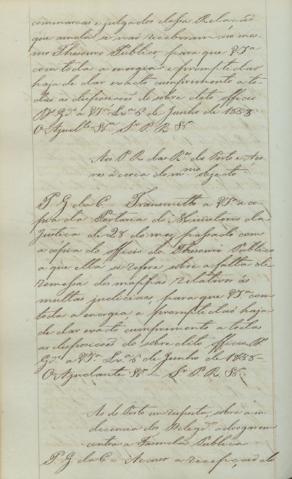 commarcas e julgados dessa Relação
que ainda a não receberam no mes
mo Thesouro Publico para que VSª
com toda a energia e promptidão
haja de dar exacto cumprimento a to
das as disposições do sobre dito officio
Dˢ Gᵉ a VSª Lxª 6 de Junho de 1838
O Ajudᵗᵉ
Ao P. R. da Rᵃᵐ do Porto
ácerca do mᵐᵒ objecto
P. G. da C. Transmitto a VSª a co
pia da Portaria do Ministerio da
Justiça de 28 do mez passado com
a copia do officio do Thesouro Publico
a que ella se refere sobre a falta da
remessa dos mappas relativos ás
multas judiciaes, para que VSª com
toda a energia e promptidão haja
de dar exacto cumprimento a todas
as disposições do sobre dito officio Dˢ
Gᵉ a VSª Lxª 6 de Junho de 1838
O Ajudante
Ao do Porto em resposta, sobre a in
decencia dos Delegᵒˢ advogarem
contra a Fazenda Publica
P. G. da C. Accuso a recepção do